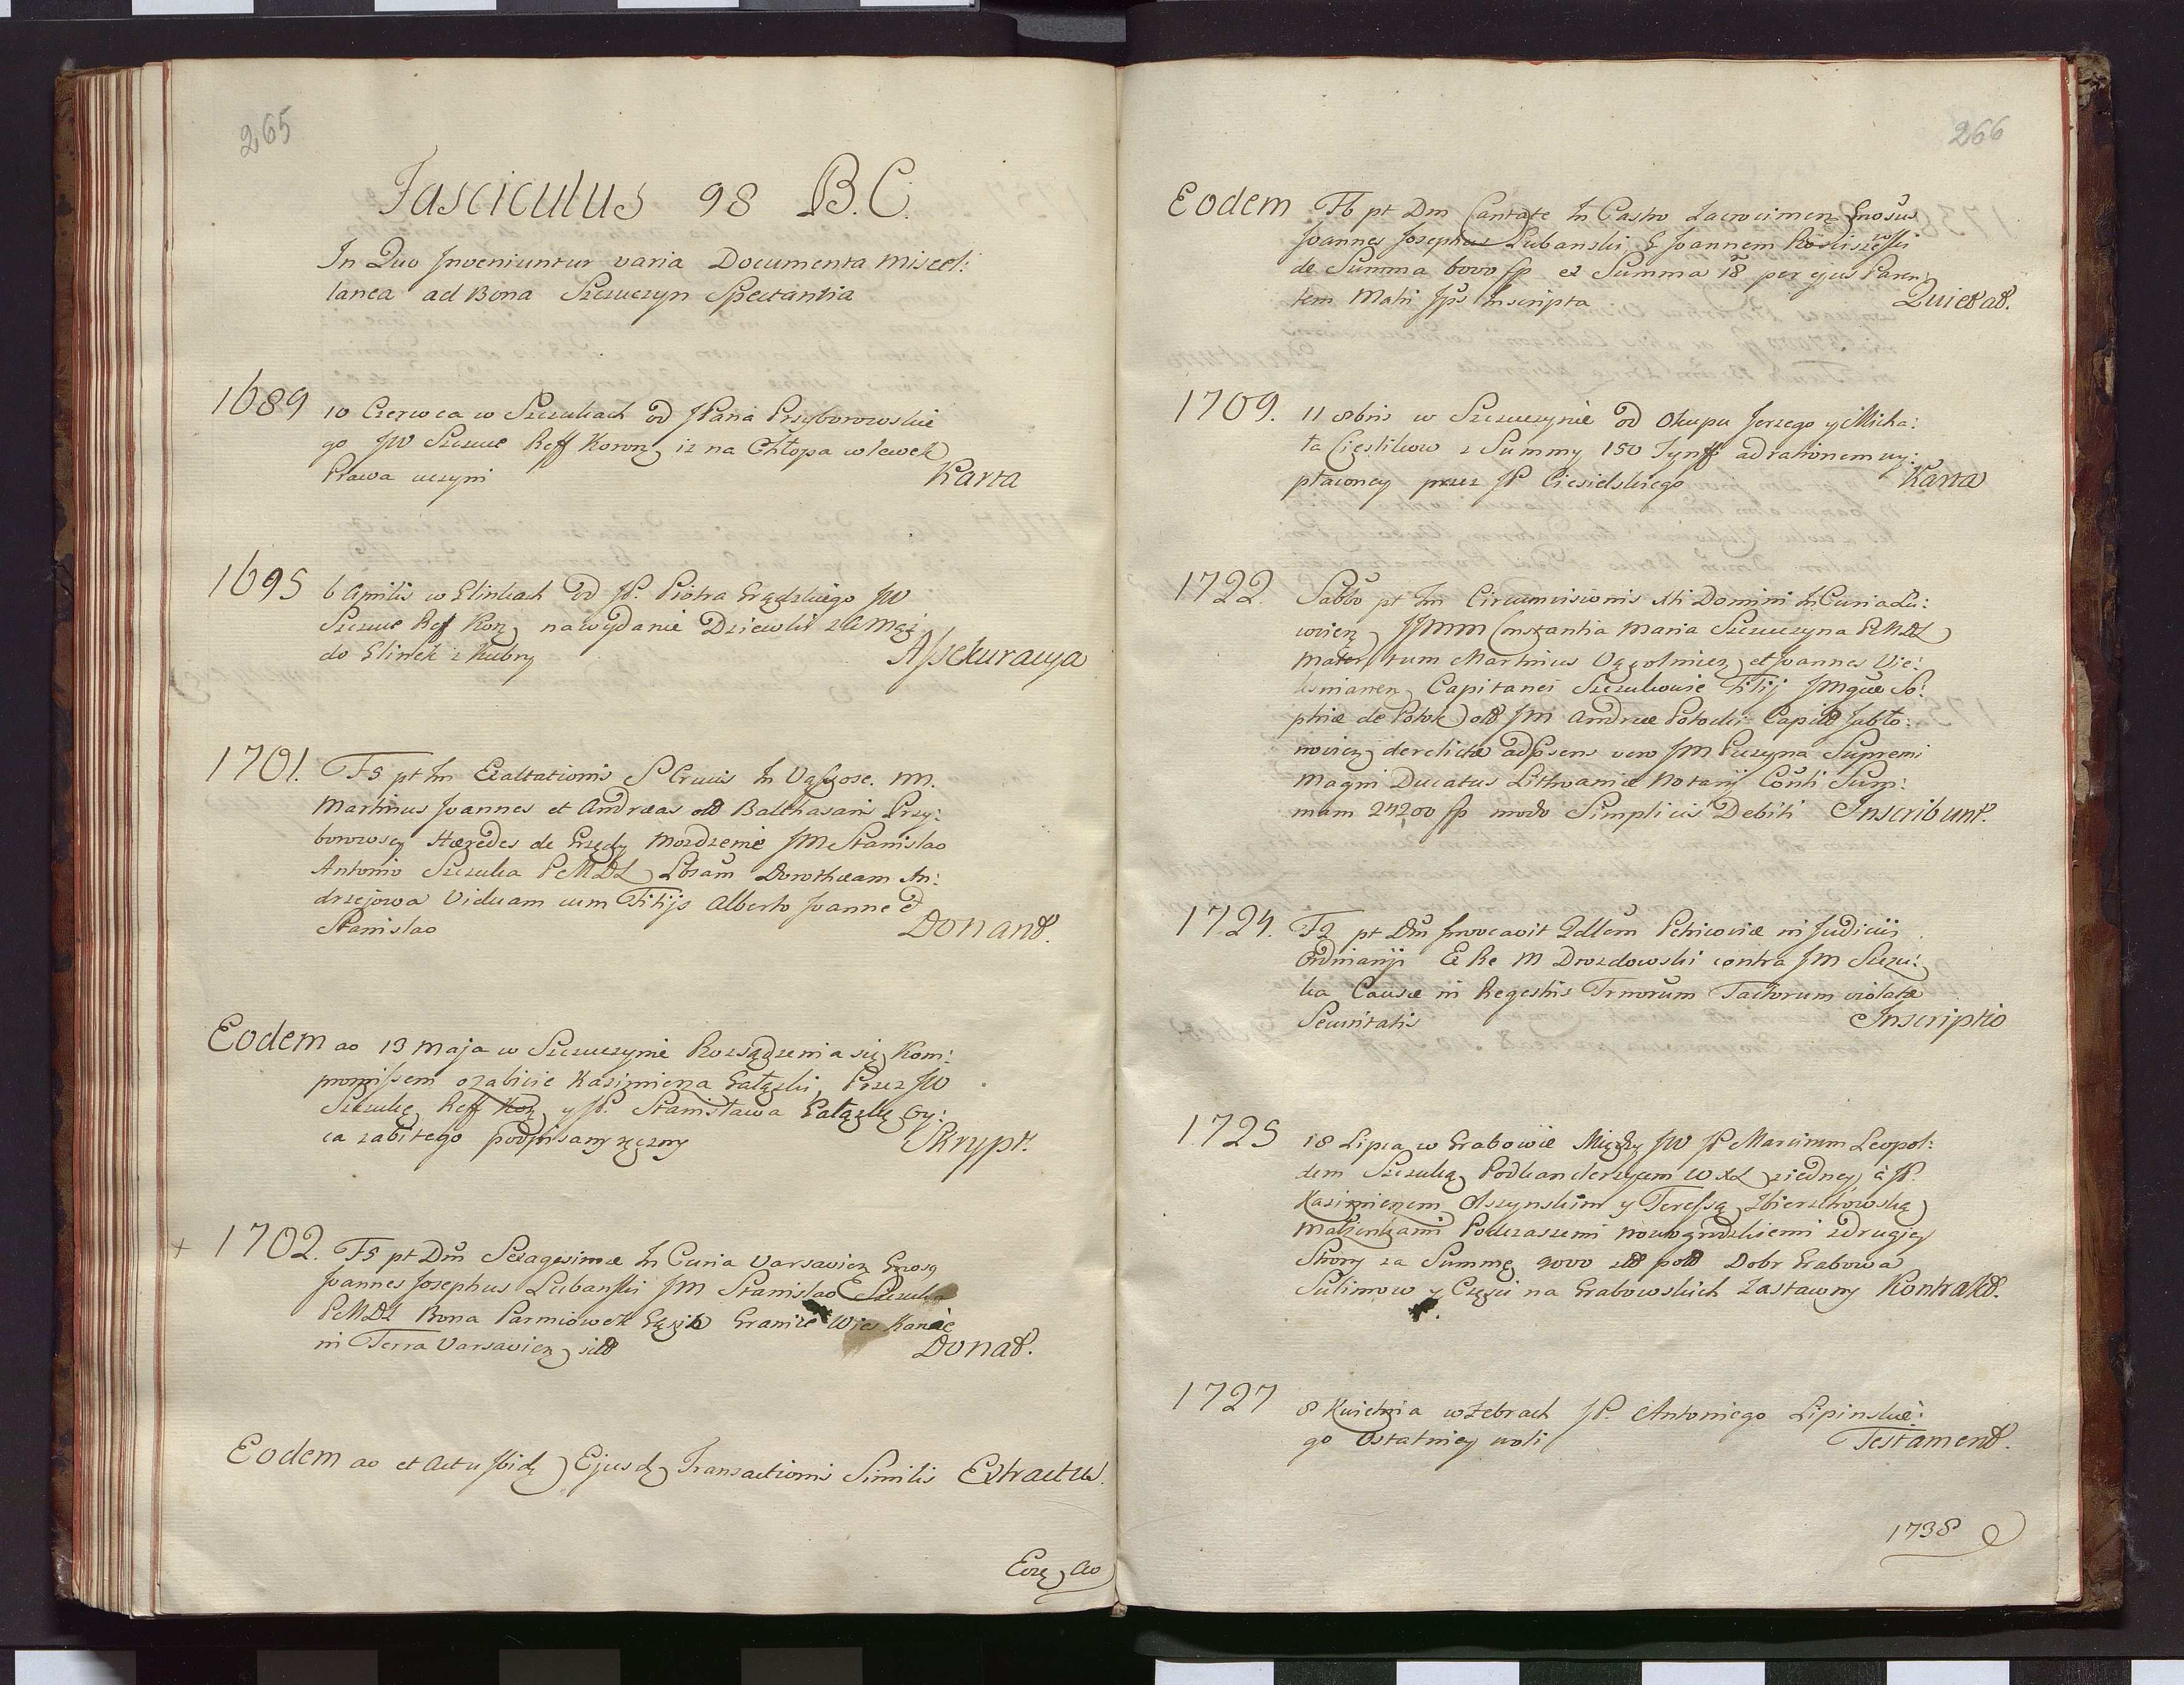 265
Fasciculus 98 B.C.
In Quo Inveniuntur varia Documenta Miscel:
lanea ad Bona Szczuczyn Spectantia
1689 10 Czerwca w Szczukach od JPana Przyborowskie
go JW Szczuce Reff Koronz iz na Chłopa wlewek
Prawa uczyni Karta
1695 6 Aprilis w Glinkach od JP. Piotra Grądzkiego JW
Szczuce Ref Korz na wydanie Dziewki za Mąz
do Glinek z Kubry Assekuracya
1701. F5 pt Im Exaltationis S Crucis In Vąssose. MM.
Martinus Joannes et Andraeas olt Balthasaris Przy:
borowscy Haeredes de Grzędy Mozdzenie JM Stanislao
Antonio Szczuka RMDL Lbsam Dorotheam An:
drzejowa Viduam cum Filijs Alberto Joanne et
Stanislao Donant.
Eodem ao 13 Maja w Szczuczynie Rozsądzenia się Kom:
promissem o zabicie Kazimierza Gałązki, Przez JW
Szczukę Reff Korz y JP. Stanisława Gałązkę Oy:
ca zabitego podpisany ręczny Skrypt.
+ 1702. F5 pt Dm Sexagesimae In Curia Varsavien Gnosą
Joannes Josephus Lubanski JM Stanislao Szczuka
RMDL Bona Parmiowek Granice Wies Kanie
in Terra Varsavien sitt Donat.
Eodem ao et Actu Ibidz Ejusdz Transactionis Similis Extractus.
Eozę Ao
266
Eodem F6 pt Dm Cantate In Castro Zacrocimenz Gnosus
Joannes Josephus Lubanski G Joannem
de Summa 6000 fp ex Summa 18 per ejus Paren
tem Matri Jps Inscripta Quietat.
1709. 11 8bris w Szczuczynie od Okupu Jerzego y Micha:
ła Cięslikow z Summy 150 Tynff ad rationem wy:
płaconey przez JP Ciesielskiego Karta
1722. Sabbo pt Im Circumcisionis Xti Domini In Curia Lu:
wienz JJMM Constantia Maria Szczuczyna RMDL
Mater, tum Martinus Vąsolniez et Joannes Vie:
lsnianen Capitanei Szczukowie Filij JMquae So:
phiae de Potok olt JM Andreae Potocki Capitt Jabło:
novienz derelictae adpsens vero JM Puzyna Supremi
Magni Ducatus Lithvaniae Notarij Consti Sum:
mam 24200 fp modo Simplicis Debiti Inscribunt.
1724. F2 pt Dm Invocavit Zdlem Petricoviae in Judiciis
Ordinarijs Ex Re M Drozdowski contra JM Szczu:
ka Causae in Regestris Trnorum Factorum violatae
Securitatis Inscriptio
1725 18 Lipca w Grabowie Między JW JP Marcinem Leopol:
dem Szczuką Podkanclerzym WXL z iedney, à JP.
Kazimierzem Olszynskim y Teressą Zbierzchowską
Małzenkami Podczaszemi Nowogrodzkiemi z drugiey
Strony za Summę 9000 złt polt Dobr Grabowa
Sulimow y Częsci na Grabowskich Zastawny Kontrakt.
1727 8 Kwietnia w Zebrach JP. Antoniego Lipinskie:
go Ostatniey woli Testament.
1738